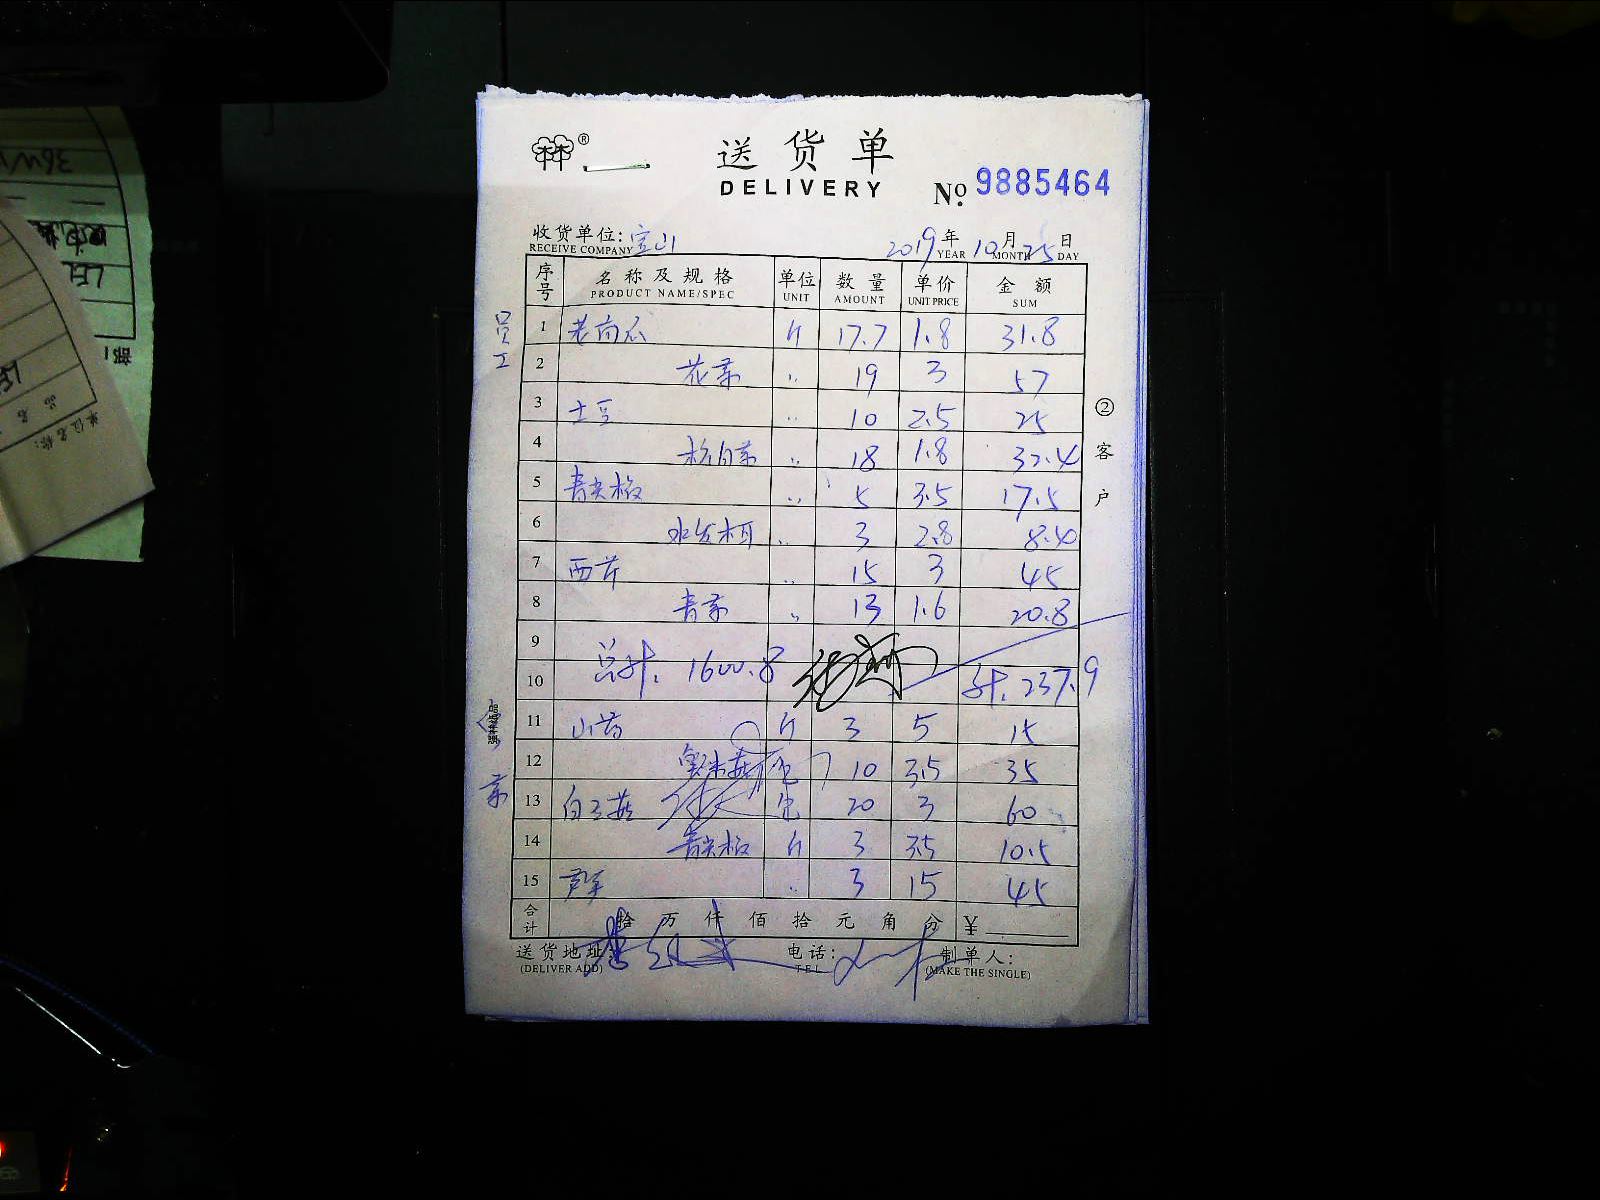 送货单
DELIVERY
No. 9885464
收货单位: 宝山 2019年10月25日
RECEIVE COMPANY YEAR MONTH DAY
序号 名称及规格 单位 数量 单价 金额
PRODUCT NAME/SPEC UNIT AMOUNT UNIT PRICE SUM
员工
1 老南瓜 斤 17.7 1.8 31.8
2 花菜 〃 19 3 57
3 土豆 〃 10 2.5 25
4 杭白菜 〃 18 1.8 32.4
5 青尖椒 〃 5 3.5 17.5
6 水发木耳 〃 3 2.8 8.40
7 西芹 〃 15 3 45
8 青菜 〃 13 1.6 20.8
9
10 总计: 1600.8 计: 237.9
11 山药 斤 3 5 15
12 10 3.5 35
13 白玉菇 包 20 3 60
14 青尖椒 斤 3 3.5 10.5
15 芦笋 〃 3 15 45
合计 拾万仟佰拾元角分 ¥
送货地址: 电话: 制单人:
(DELIVER ADD) TEL (MAKE THE SINGLE)
②客户